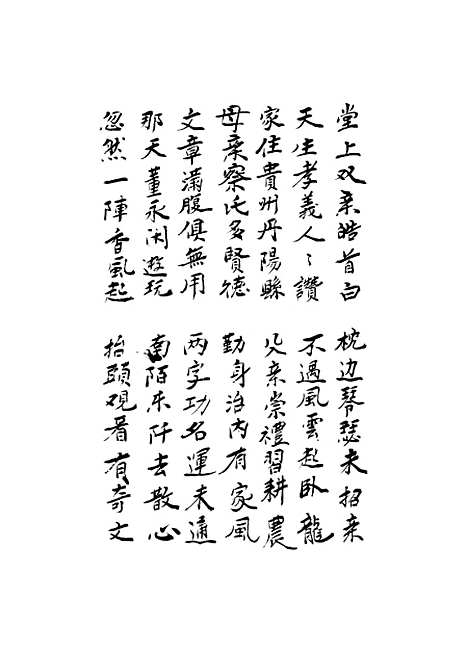 堂上双亲皓首白 枕边琴瑟未招亲
天生孝義人〻讚 不遇風雲起卧龍
家住貴州丹陽縣 父亲崇禮習耕農
母亲察氏多賢德 勤身治内有家風
文章滿腹俱無用 两字功名運未通
那天董永闲遊玩 南陌东阡去散心
忽然一陣香風起 抬頭观看有奇文